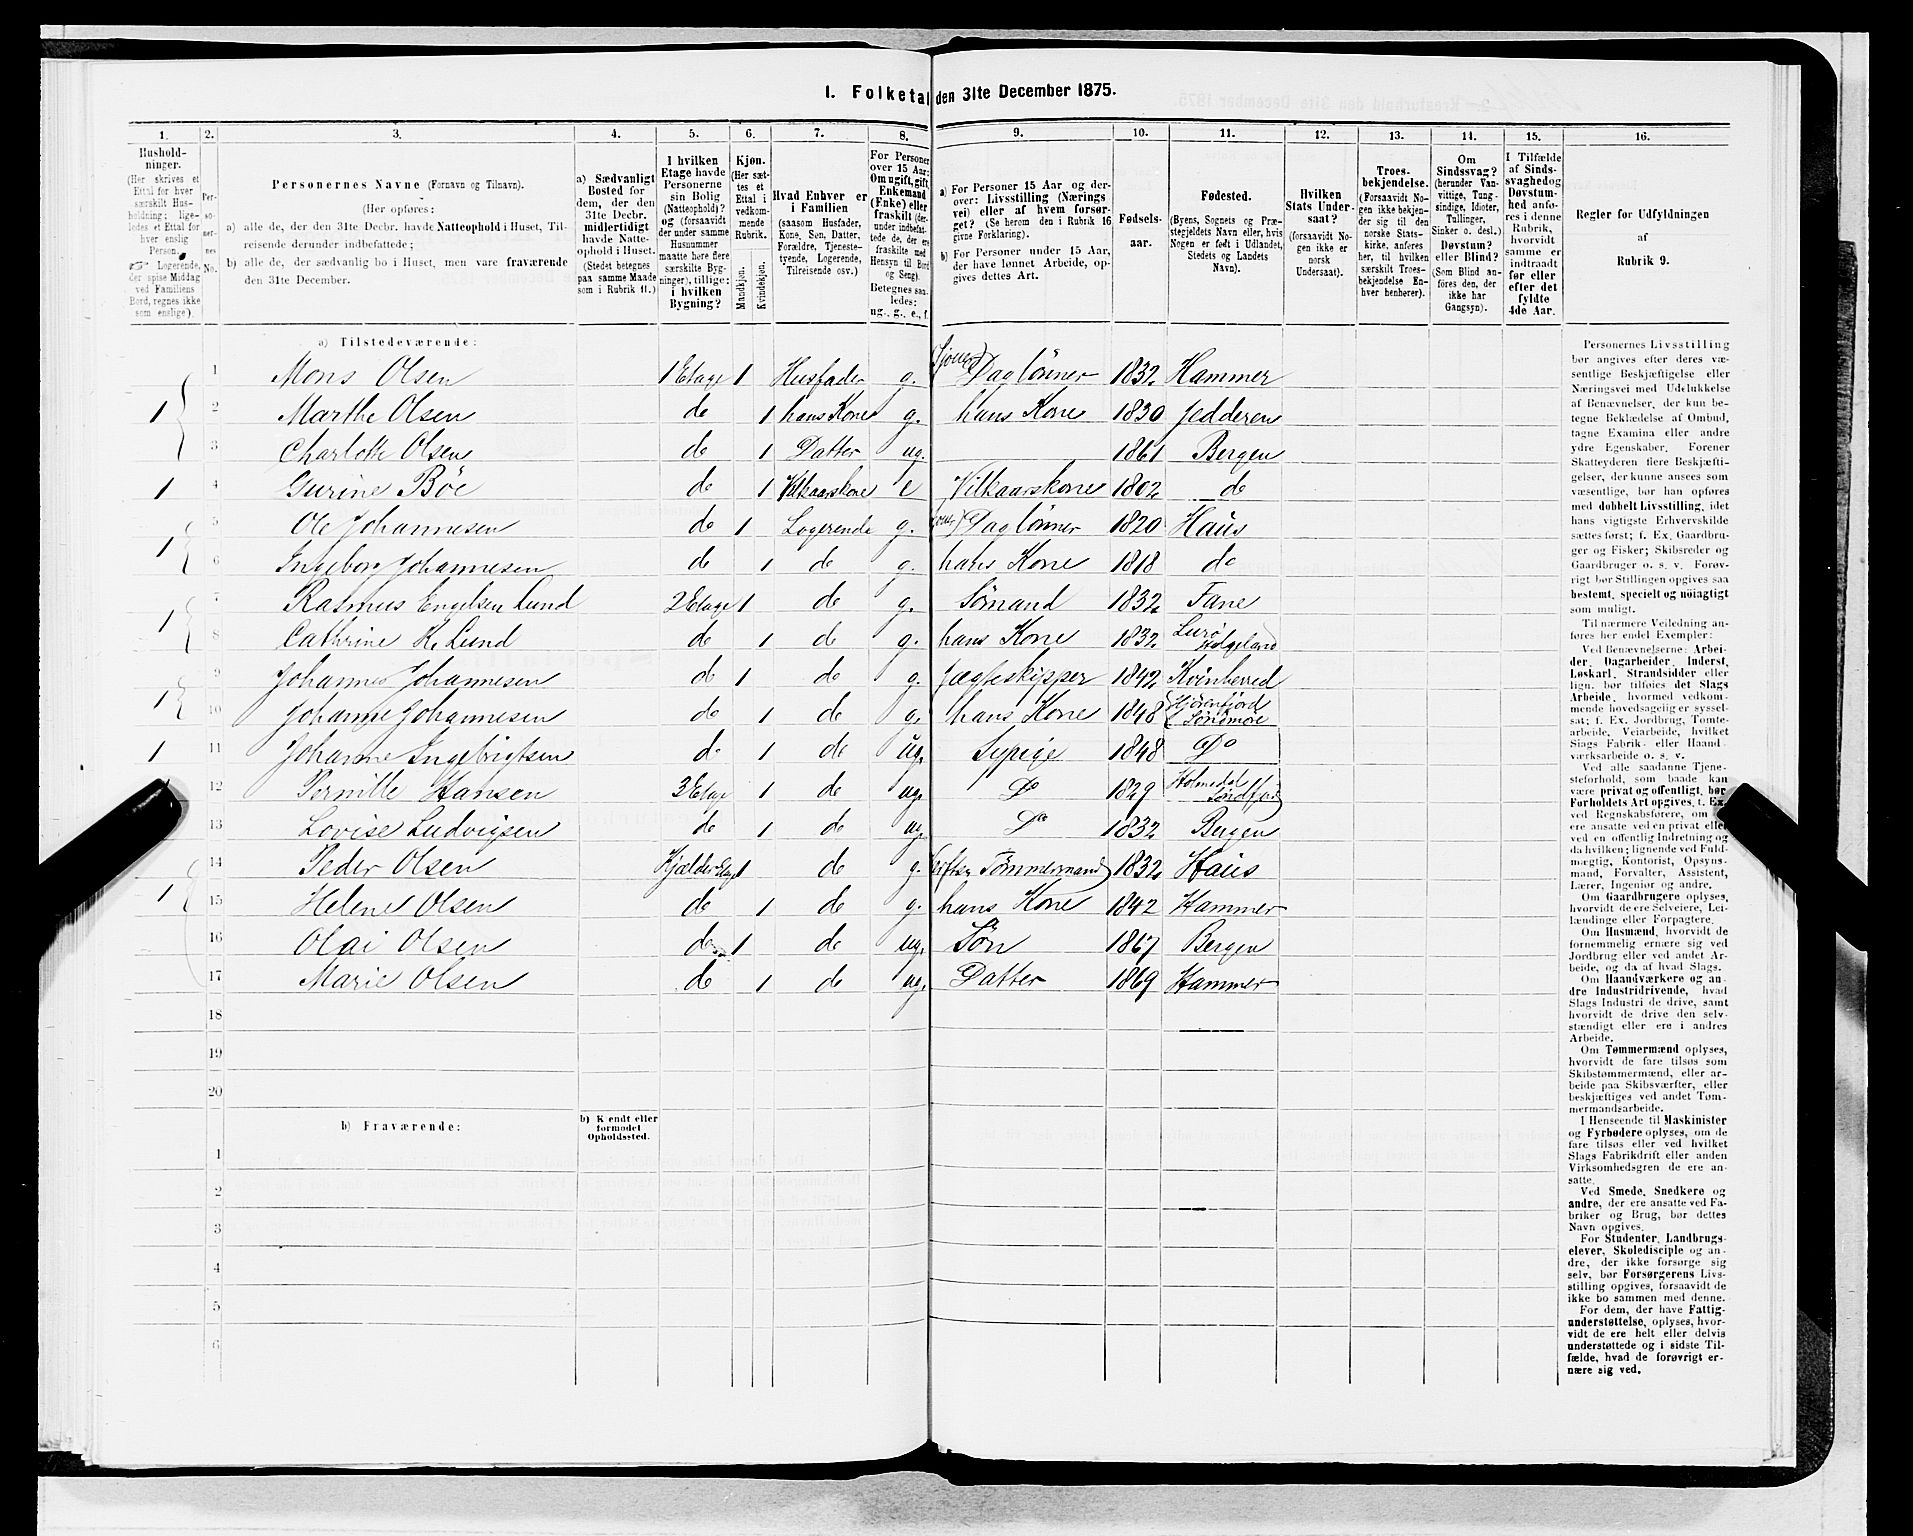 1. Folketal den 31te December 1875.
1. 2. 3. 4. 5. 6. 7. 8. 9. 10. 11. 12. 13. 14. 15. 16.
Hushold-
ninger.
(Her skrives et
Ettal for hver
særskilt Hus-
holdning; lige-
ledes et Ettal for
hver enslig
Person.
Logerende,
der spise Middag
ved Familiens
Bord, regnes ikke
som enslige).
Per-
so-
ner-
nes
No.
Personernes Navne (Fornavn og Tilnavn).
(Her opføres:
a) alle de, der den 31te Decbr. havde Natteophold i Huset, Til-
reisende derunder indbefattede;
b) alle de, der sædvanlig bo i Huset, men vare fraværende
den 31te December.
a) Sædvanligt
Bosted for
dem, der den
31te Decbr.
midlertidigt
havde Natte-
ophold i Huset.
(Stedet betegnes
paa samme Maade
som i Rubrik 11.)
I hvilken
Etage havde
Personerne
sin Bolig
(Natteophold)?
og (forsaavidt
der under samme
Husnummer
maatte høre flere
særskilte Byg-
ninger), tillige:
i hvilken
Bygning?
Kjøn.
(Her sæt-
tes et
Ettal i
vedkom-
mende
Rubrik.
Mandkjøn.
Kvindekjøn.
Hvad Enhver er
i Familien
(saasom Husfader,
Kone, Søn, Datter,
Forældre, Tjeneste-
tyende, Logerende,
Tilreisende osv.)
For Personer
over 15 Aar:
Om ugift, gift,
Enkemand
(Enke) eller
fraskilt (der-
under indbefat-
tede de, der ere
fraskilte med
Hensyn til Bord
og Seng).
Betegnes saa-
ledes:
ug., g., e., f.
a) For Personer 15 Aar og der-
over: Livsstilling (Nærings
vei) eller af hvem forsør-
get? (Se herom den i Rubrik 16
givne Forklaring).
b) For Personer under 15 Aar,
der have lønnet Arbeide, op-
gives dettes Art.
Fødsels-
aar.
Fødested.
(Byens, Sognets og Præ-
stegjeldets Navn eller, hvis
Nogen er født i Udlandet,
Stedets og Landets
Navn).
Hvilken
Stats Under-
saat?
(forsaavidt No-
gen ikke er
norsk
Undersaat).
Troes-
bekjendelse.
(Forsaavidt No-
gen ikke bekjen-
der sig til den
norske Stats-
kirke, anføres
her, til hvilken
særskilt Troes-
bekjendelse En-
hver henhører).
Om
Sindssvag?
(herunder Van-
vittige, Tung-
sindige, Idioter,
Tullinger,
Sinker o. desl.)
Døvstum?
eller Blind?
(Som Blind an-
føres den, der
ikke har
Gangsyn).
I Tilfælde
af Sinds-
svaghed og
Døvstum-
hed anfø-
res i denne
Rubrik,
hvorvidt
samme er
indtraadt
før eller
efter det
fyldte
4de Aar.
Regler for Udfyldningen
af
Rubrik 9.
a) Tilstedeværende:
1 Mons Olsen 1 Etage 1 Husfader g. Dagtønner 1832 Hammer
1 2 Marthe Olsen do 1 hans Kone g. hans Kone 1830 Jedderen
3 Charlotte Olsen do 1 Datter ug. 1861 Bergen
1 4 Gurine Böe do 1 Vilkaarskone e Vilkaarskone 1802 do
5 Ole Johannesen do 1 Logerende g. Daglönner 1820 Haus
1 6 Ingeborg Johannesen do 1 do g. hans Kone 1818 do
7 Rasmus Engelsen Lund 2 Etage 1 do g. Sömand 1832 Fane
1 8 Cathrine H. Lund do 1 do g. hans Kone 1832 Lurö Helgeland
9 Johannes Johannesen do 1 do g. Jægteskipper 1842 Kvinherred
1 10 Johanne Johannesen do 1 do g. hans Kone 1848 Hjörinfjord Söndmöre
1 11 Johanne Ingebrigtsen do 1 do ug. Sypige 1848 Do
12 Pernille Hansen 3 Etage 1 do ug. Do 1829 Holmedal Söndfjord
13 Lovise Ludvigsen do 1 do ug. Do 1832 Bergen
14 Peder Olsen Kjælder Etage 1 do g. Tömmermand 1832 Haus
1 15 Helene Olsen do 1 do g. hans Kone 1842 Hammer
16 Olai Olsen do 1 do ug. Sön 1867 Bergen
17 Marie Olsen do 1 do ug. Datter 1869 Hammer
18
19
20
b) Fraværende:
b) Kjendt eller
formodet
Opholdssted.
1
2
3
4
5
6
Personernes Livsstilling
bør angives efter deres væ-
sentlige Beskjæftigelse eller
Næringsvei med Udelukkelse
af Benævnelser, der kun be-
tegne Beklædelse af Ombud,
tagne Examina eller andre
ydre Egenskaber. Forener
Skatteyderen flere Beskjæfti-
gelser, der kunne ansees som
væsentlige, bør han opføres
med dobbelt Livsstilling, idet
hans vigtigste Erhvervskilde
sættes først; f. Ex. Gaardbru-
ger og Fisker; Skibsreder og
Gaardbruger o. s. v. Forøv-
rigt bør Stillingen opgives saa
bestemt, specielt og nøiagtigt
som muligt.
Til nærmere Veiledning an-
føres her endel Exempler:
Ved Benævnelserne: Arbei-
der, Dagarbeider, Inderst,
Løskarl, Strandsidder eller
lign. bør tilføies det Slags
Arbeide, hvormed vedkom-
mende hovedsagelig er syssel-
sat; f. Ex. Jordbrug, Tomte-
arbeide, Veiarbeide, hvilket
Slags Fabrik- eller Haand-
værksarbeide o. s. v.
Ved alle saadanne Tjene-
steforhold, som baade kan
være privat og offentligt, bør
Forholdets Art opgives, t. Ex.
ved Regnskabsførere, om de
ere ansatte ved en privat eller
ved en offentlig Indretning og
da hvilken; lignende ved Fuld-
mægtig, Kontorist, Opsyns-
mand, Forvalter, Assistent,
Lærer, Ingeniør og andre.
Om Gaardbrugere oplyses,
hvorvidt de ere Selveiere, Lei-
lændinge eller Forpagtere.
Om Husmænd, hvorvidt de
fornemmelig ernære sig ved
Jordbrug eller ved andet Ar-
beide, og da af hvad Slags.
Om Haandværkere og an-
dre Industridrivende, hvad
Slags Industri de drive, samt
hvorvidt de drive den selv-
stændigt eller ere i andres
Arbeide.
Om Tømmermænd oplyses,
hvorvidt de fare tilsøs som
Skibstømmermænd, eller ar-
beide paa Skibsværfter, eller
beskjæftiges ved andet Tøm-
mermandsarbeide.
I Henseende til Maskinister
og Fyrbødere oplyses, om de
fare tilsøs eller ved hvilket
Slags Fabrikdrift eller anden
Virksomhedsgren de ere an-
satte.
Ved Smede, Snedkere og
andre, der ere ansatte ved Fa-
briker og Brug, bør dettes
Navn opgives.
For Studenter, Landbrugs-
elever, Skoledisciple og an-
dre, der ikke forsørge sig
selv, bør Forsørgerens Livs-
stilling opgives, forsaavidt de
ikke bo sammen med denne.
For dem, der have Fattig-
understøttelse, oplyses, hvor-
vidt de ere helt eller delvis
understøttede og i sidste Til-
fælde, hvad de forøvrigt er-
nære sig ved.